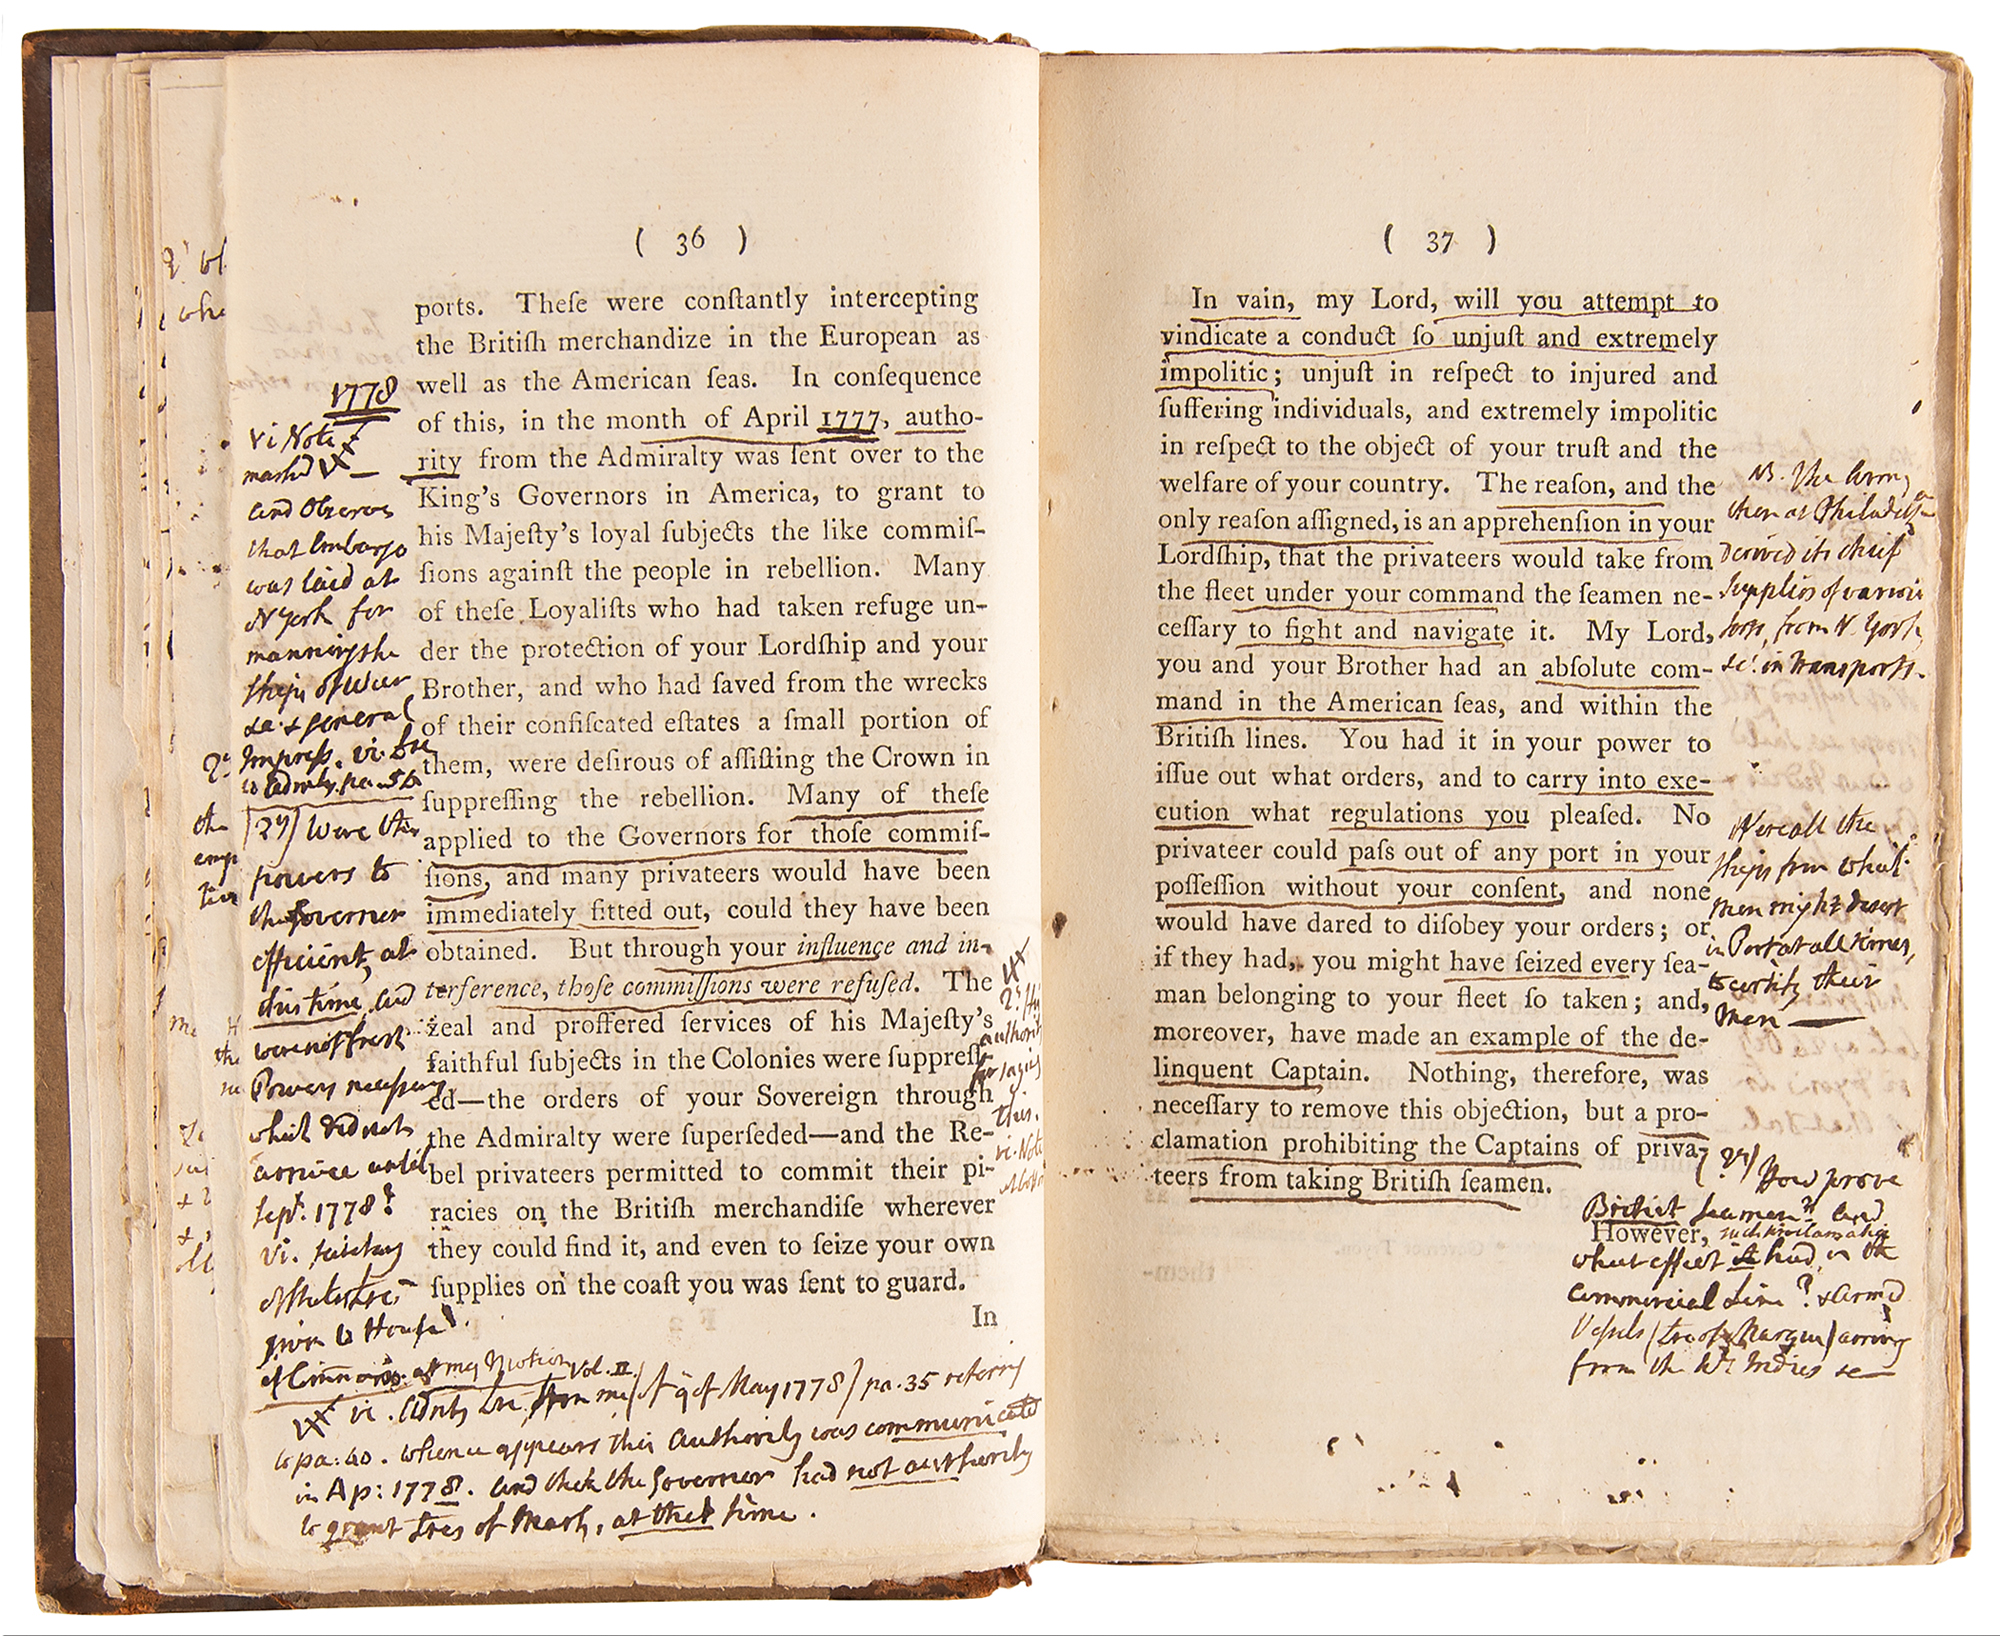 ( 36 )
ports. Theſe were conſtantly intercepting
the Britiſh merchandize in the European as
well as the American ſeas. In conſequence
of this, in the month of April 1777, autho-
rity from the Admiralty was ſent over to the
King's Governors in America, to grant to
his Majeſty's loyal ſubjects the like commiſ-
ſions againſt the people in rebellion. Many
of theſe Loyaliſts who had taken refuge un-
der the protection of your Lordſhip and your
Brother, and who had ſaved from the wrecks
of their confiſcated eſtates a ſmall portion of
them, were deſirous of aſſiſting the Crown in
ſuppreſſing the rebellion. Many of theſe
applied to the Governors for thoſe commiſ-
ſions, and many privateers would have been
immediately fitted out, could they have been
obtained. But through your influence and in-
terference, thoſe commiſſions were refuſed. The
zeal and proffered ſervices of his Majeſty's
faithful ſubjects in the Colonies were ſuppreſſ-
ed—the orders of your Sovereign through
the Admiralty were ſuperſeded—and the Re-
bel privateers permitted to commit their pi-
racies on the Britiſh merchandiſe wherever
they could find it, and even to ſeize your own
ſupplies on the coaſt you was ſent to guard.
In
1778
vi Note
and Observe
that Embargo
was laid at
N York for
manning the
ships of War
&c. & General
Impress. vi
pa. 56
[2y] Were the
powers to
the Governor
efficient, at
this time, and
were not fresh
Powers necessary
which did not
arrive until
Sepr. 1778?
vi.
given to House
of at my Motion Vol. II.
authority
for saying
this.
vi. Note
vi. from me of May 1778) pa. 35 referring
to pa: 40. whence appears this Authority was communicated
in Ap: 1778. and that the Governor had not authority
to grant Lres of Marq, at that time.
( 37 )
In vain, my Lord, will you attempt to
vindicate a conduct ſo unjuſt and extremely
impolitic; unjuſt in reſpect to injured and
ſuffering individuals, and extremely impolitic
in reſpect to the object of your truſt and the
welfare of your country. The reaſon, and the
only reaſon aſſigned, is an apprehenſion in your
Lordſhip, that the privateers would take from
the fleet under your command the ſeamen ne-
ceſſary to fight and navigate it. My Lord,
you and your Brother had an abſolute com-
mand in the American ſeas, and within the
Britiſh lines. You had it in your power to
iſſue out what orders, and to carry into exe-
cution what regulations you pleaſed. No
privateer could paſs out of any port in your
poſſeſſion without your conſent, and none
would have dared to diſobey your orders; or
if they had, you might have ſeized every ſea-
man belonging to your fleet ſo taken; and,
moreover, have made an example of the de-
linquent Captain. Nothing, therefore, was
neceſſary to remove this objection, but a pro-
clamation prohibiting the Captains of priva-
teers from taking Britiſh ſeamen.
However,
NB. The Army
then at Philadelpa
Derived its chief
Supplies of various
sorts, from N. York,
&c. in Transports.
Were all the
ships from which
Men might desert
in Port at all times,
to their
Men —
How prove
British Seamen? and
such proclamation
what effect it had, on the
Commercial Line? & Armed
Vessels (Margin) arriving
from the Wt. Indies &c —